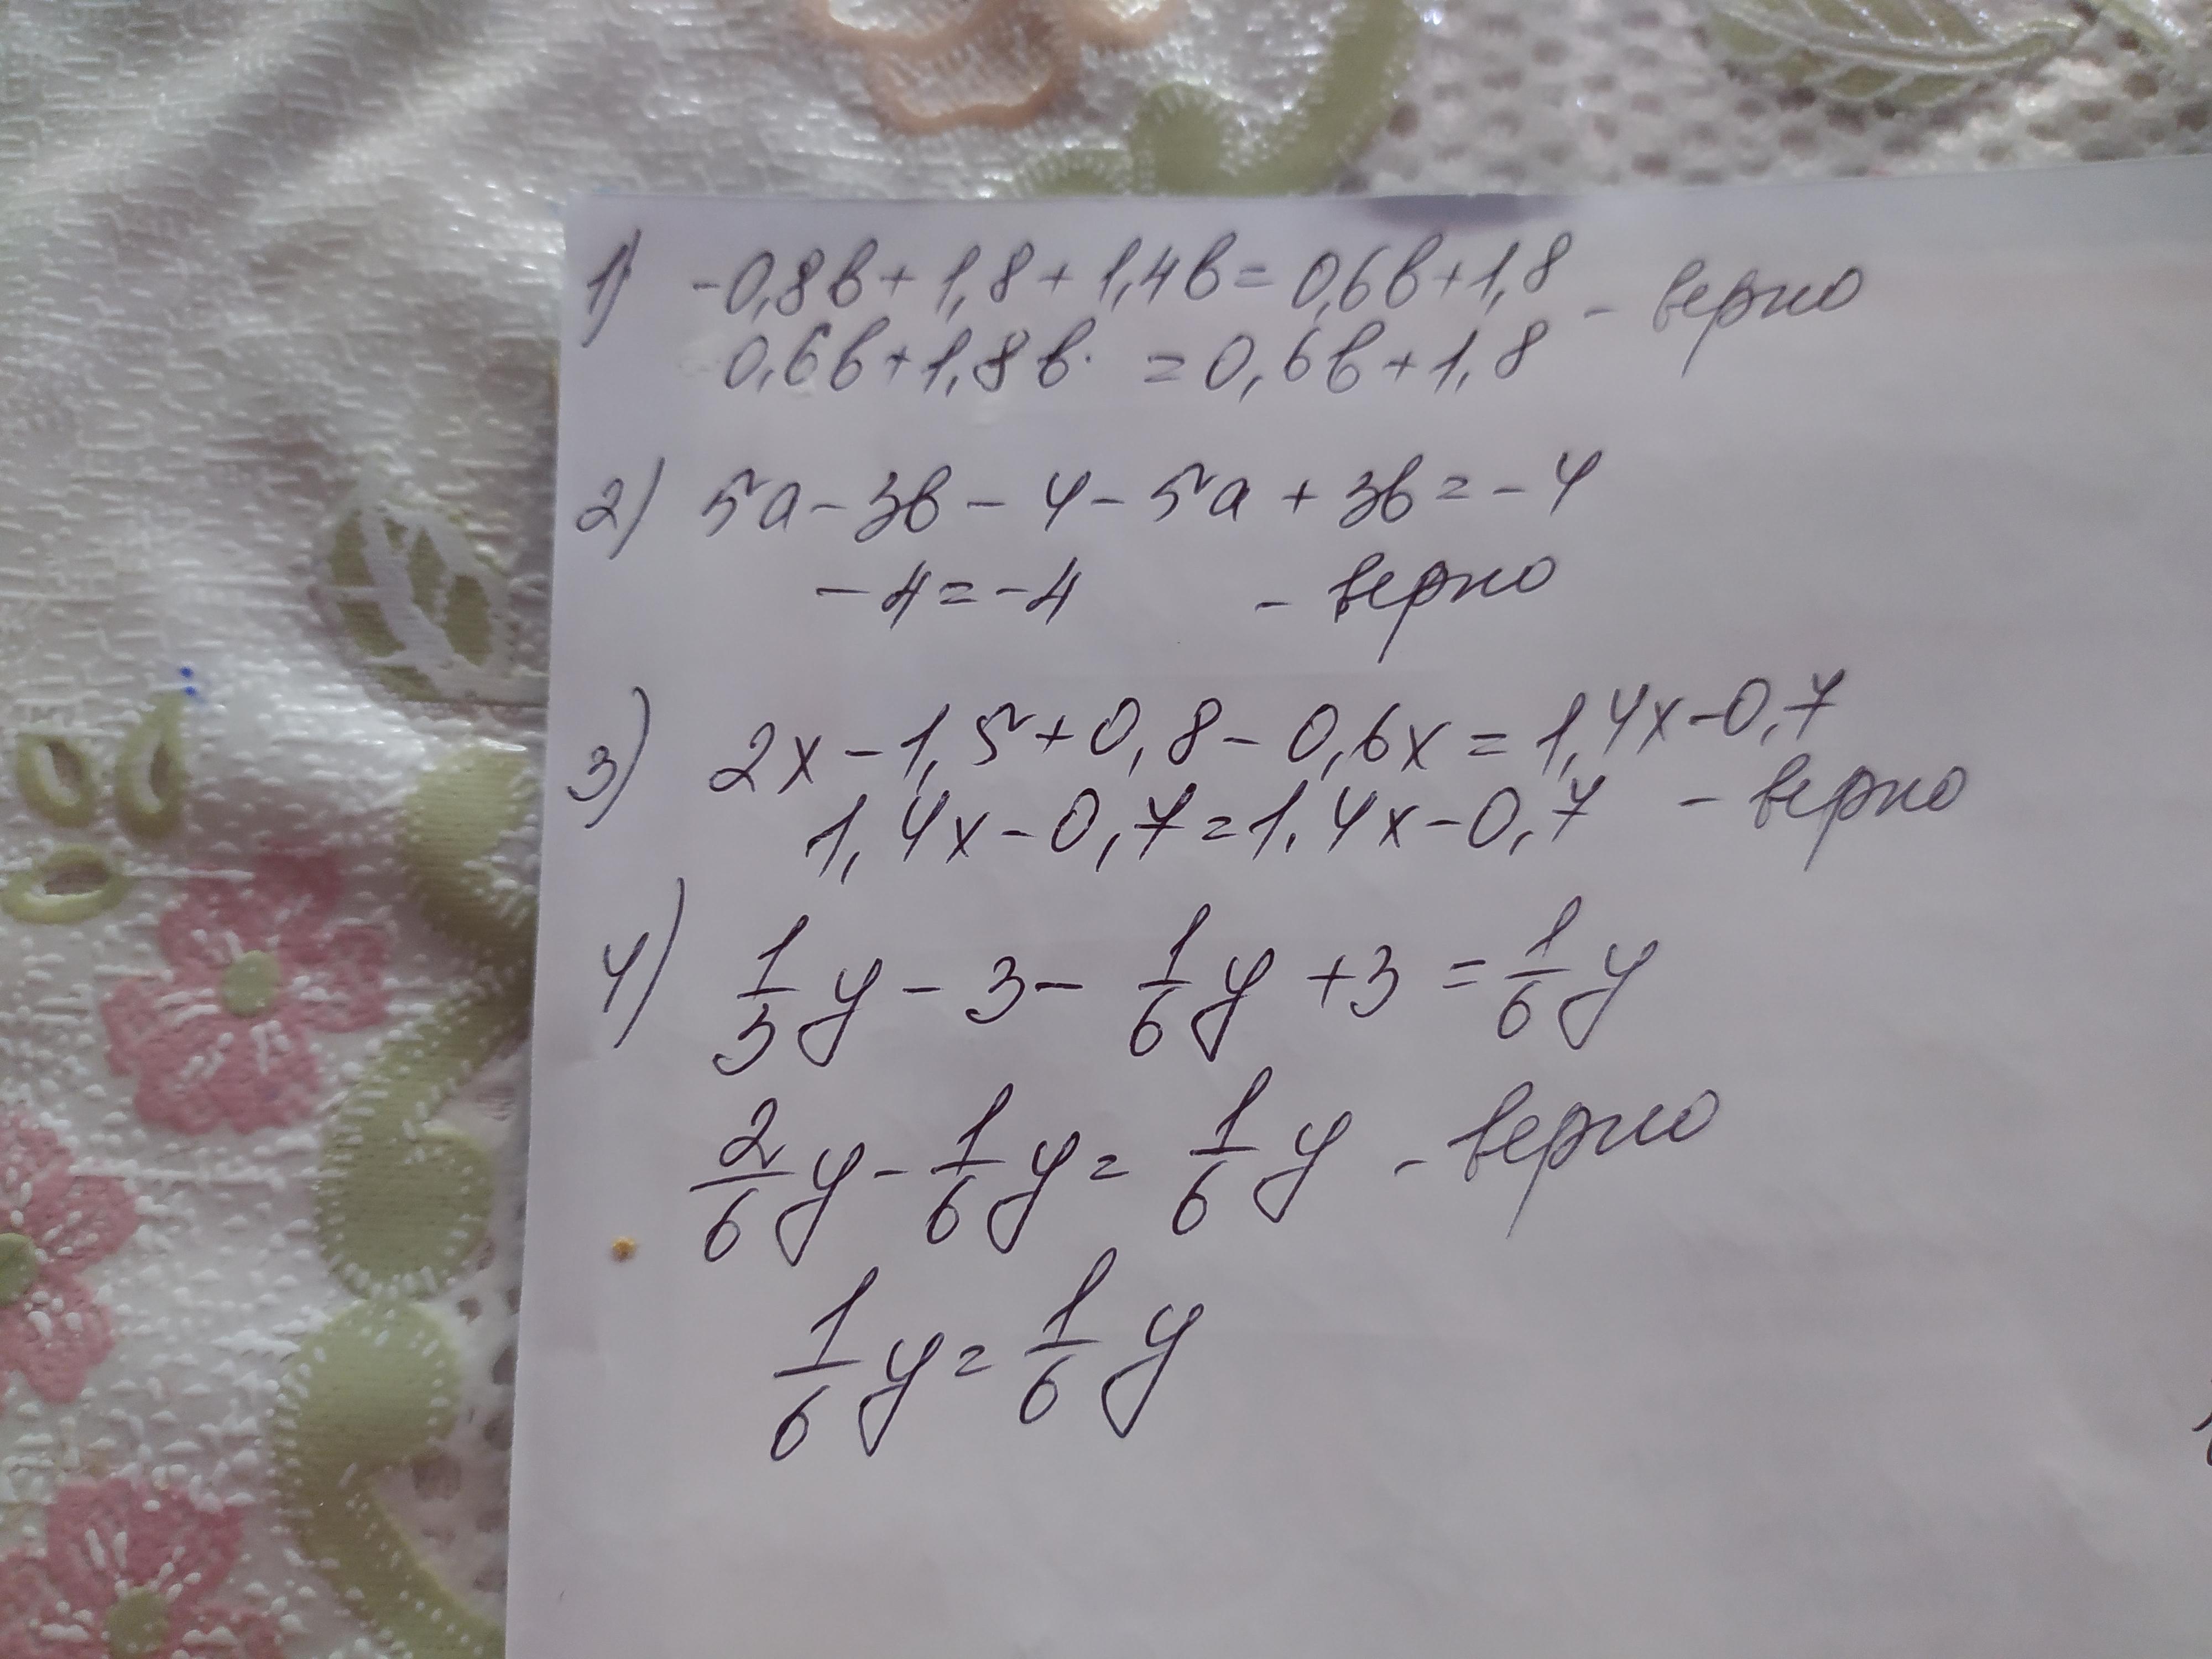 1) -0,8в + 1,8 + 1,4в = 0,6в + 1,8 - верно
0,6в + 1,8в. = 0,6в + 1,8
2) 5а - 3в - 4 - 5а + 3в = -4
-4 = -4 - верно
3) 2х - 1,5 + 0,8 - 0,6х = 1,4х - 0,7
1,4х - 0,7 = 1,4х - 0,7 - верно
4) 1/3 у - 3 - 1/6 у + 3 = 1/6 у
2/6 у - 1/6 у = 1/6 у - верно
1/6 у = 1/6 у